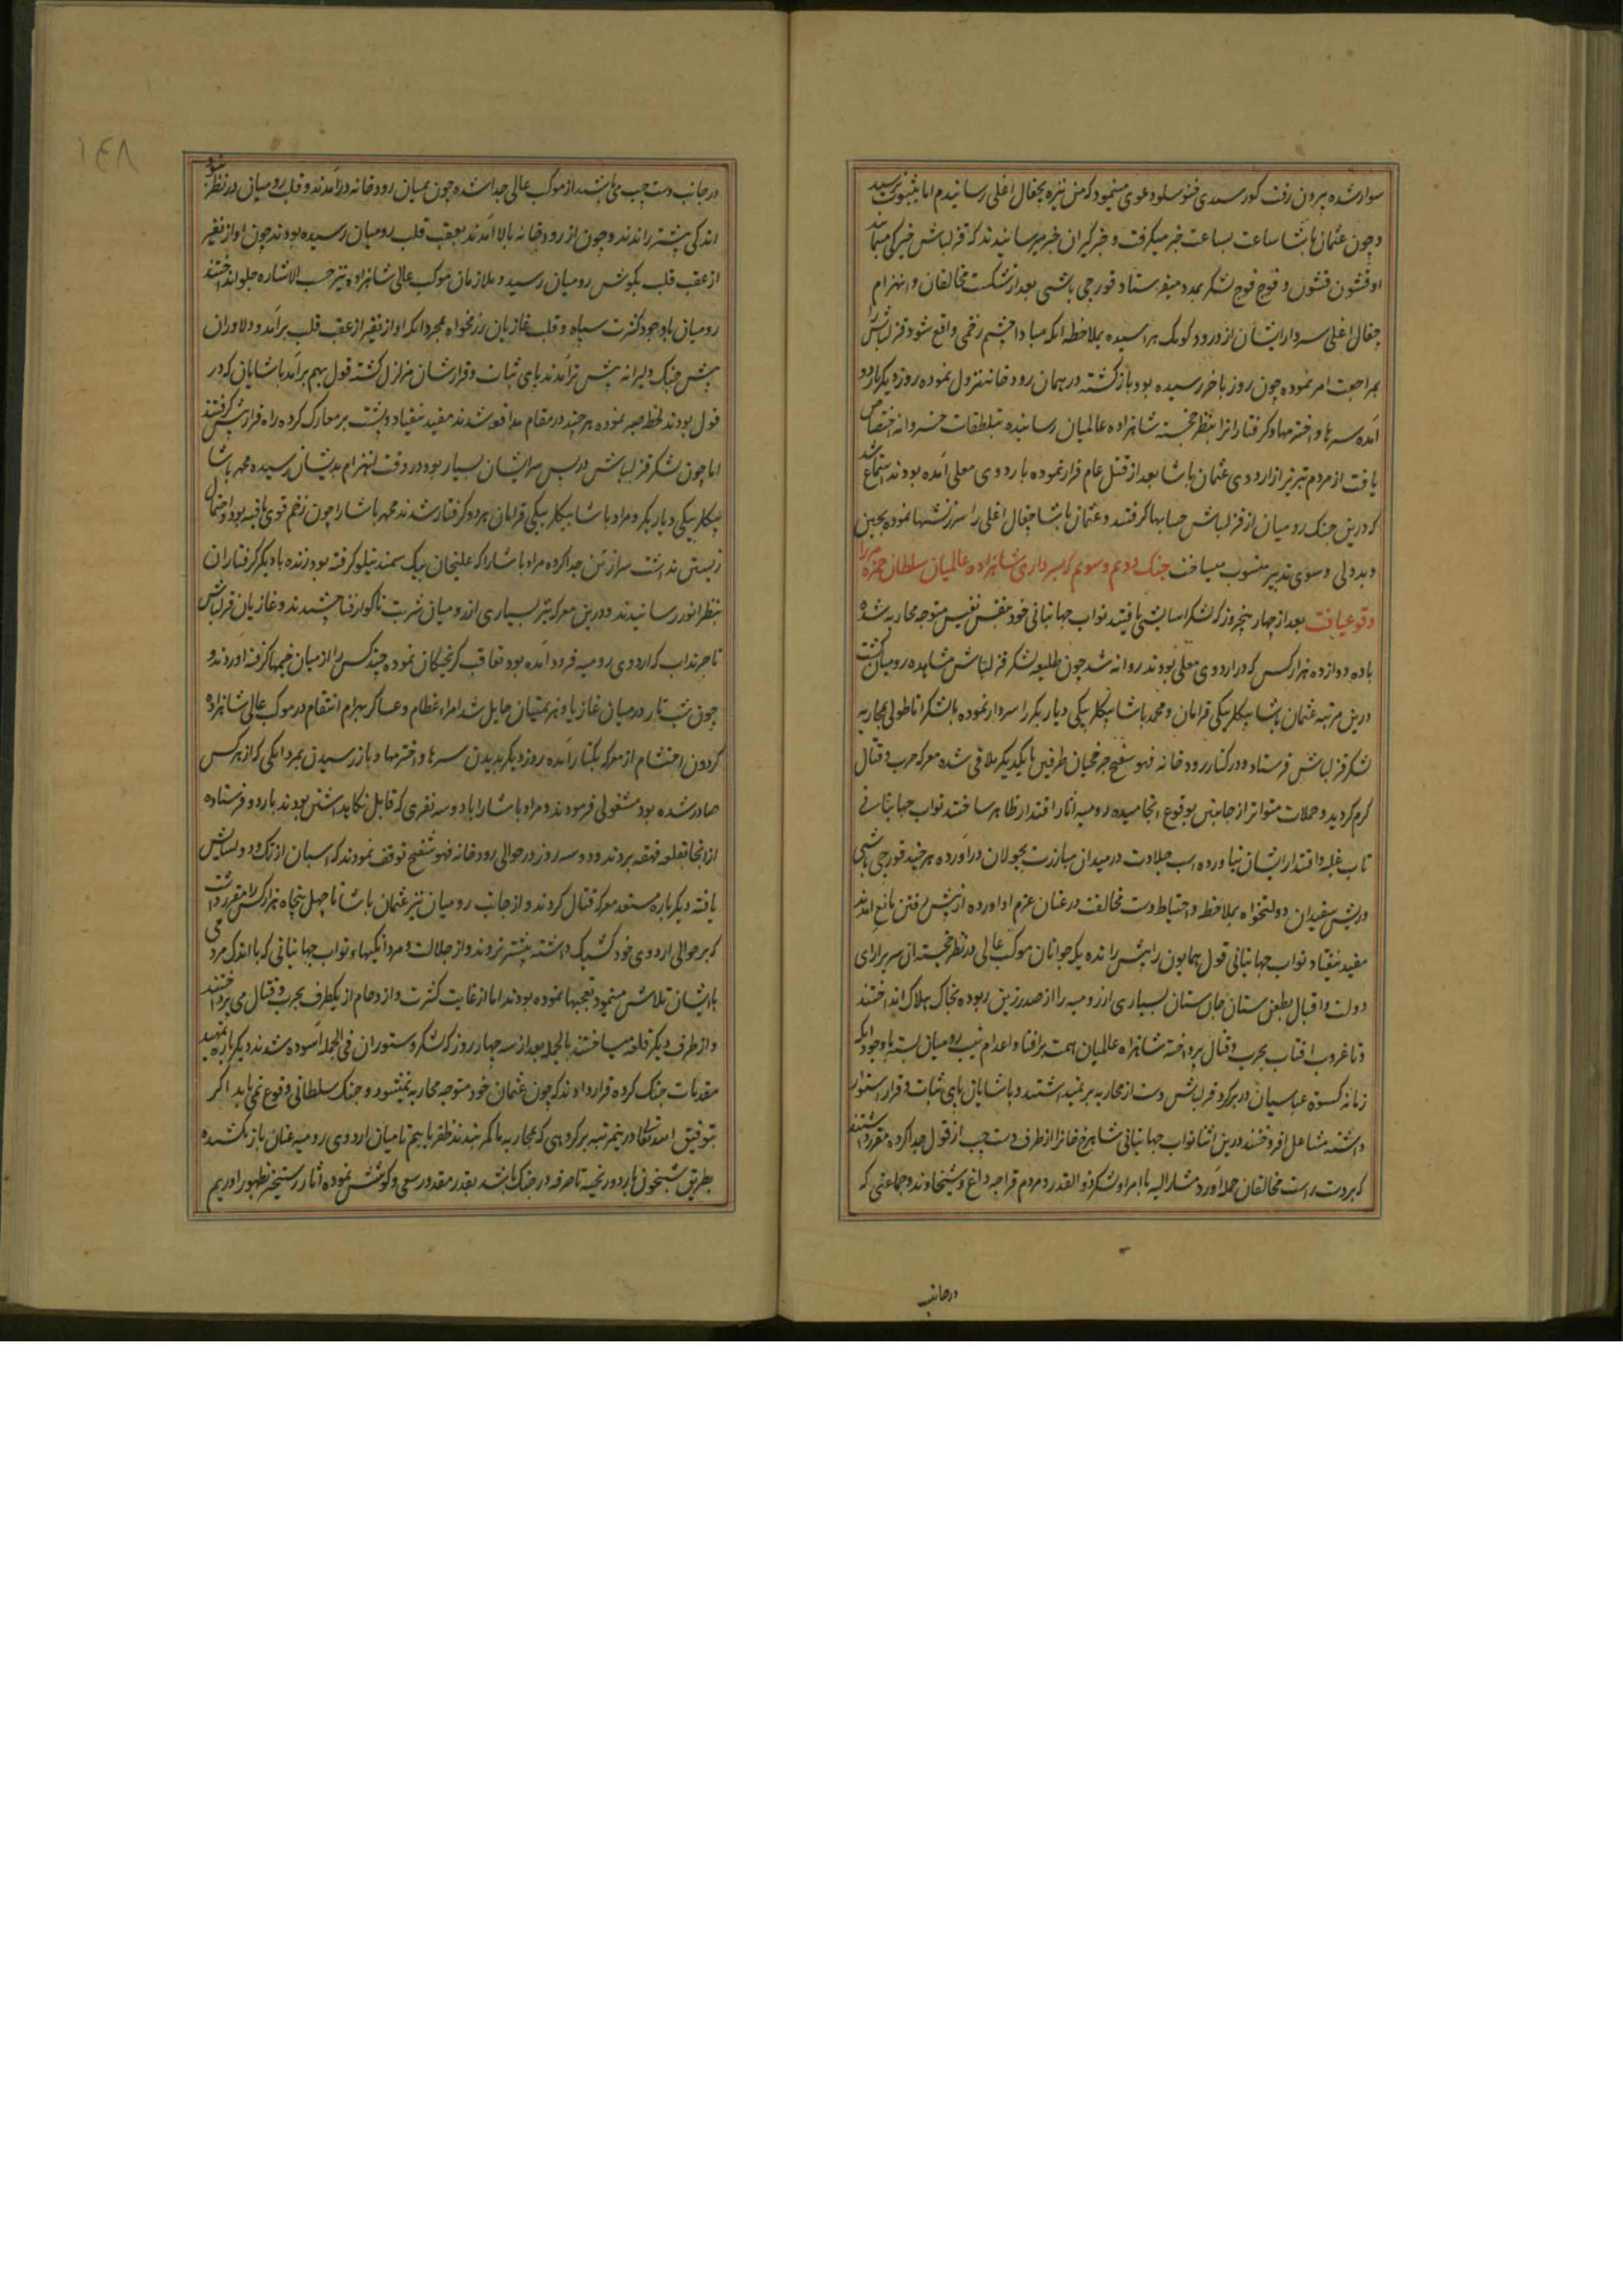 سوار شده بیرون رفت کور سیدی خنوسلو دعوی مینمود که من نیزه بجغال اغلی رسانیدم اما بثبوت نرسید
و چون عثمان پاشا ساعت بساعت خبر میگرفت و خبرگیران خبر میرسانیدند که قزلباش خیرکی مینمایند
او قشون قشون و فوج فوج لشکر بمدد میفرستاد قورچی باشی بعد از شکست مخالفان و انهزام
جغال اغلی سردار ایشان از ورود کومک هراسیده بملاحظه انکه مبادا چشم زخمی واقع شود قزلباش را
بمراجعت امر نموده چون روز باخر رسیده بود بازکشته در همان رودخانه نزول نموده روز دیکر باردو
آمده سرها و اخترمها و کرفتارانرا بنظر خجسته شاهزاده عالمیان رسانیده بتلطفات خسروانه اختصاص
یافت از مردم تبریز از اردوی عثمان پاشا بعد از قتل عام فرار نموده باردوی معلی آمده بودند استماع شد
که درین جنک رومیان از قزلباش حسابها کرفتند و عثمان پاشا جغال اغلی را سرزنشها نموده بجبن
و بددلی و سوی تدبیر منسوب میساخت جنک دویم و سویم که بسرداری شاهزاده عالمیان سلطان حمزه میرزا
وقوع یافت بعد از چهار پنجروز که لشکر اسایش یافتند نواب جهانبانی خود بنفس نفیس متوجه محاربه شده
با ده دوازده هزار کس که در اردوی معلی بودند روانه شد چون طلیعه لشکر قزلباش مشاهده رومیان کشت
درین مرتبه عثمان پاشا بیکلربیکی قرامان و محمد پاشا بیکلربیکی دیاربکر را سردار نموده با لشکر اناطولی بمحاربه
لشکر قزلباش فرستاد و در کنار رودخانه فهوسفنج چرخچیان طرفین بایکدیکر ملاقی شده معرکه حرب و قتال
کرم کردید و حملات متواتر از جانبین بوقوع انجامیده رومیه اثار اقتدار ظاهر ساختند نواب جهانبانی
تاب غلبه و اقتدار ایشان نیاورده اسب جلادت در میدان مبارزت بجولان دراورده هر چند قورچی باشی
و ریش سفیدان دولتخواه بملاحظه و احتیاط دست مخالفت در عنان عزم او اورده از پیش رفتن مانع آمدند
مفید نیفتاد نواب جهانبانی قول همایون را پیش رانده یکه جوانان موکب عالی در نظر خجسته ان سریرارای
دولت و اقبال بطعن سنان جان ستان بسیاری از رومیه را از صدر زین ربوده بخاک هلاک انداختند
و تا غروب افتاب بحرب و قتال پرداخته شاهزاده عالمیان همت بر افنا و اعدام رومیان بسته باوجود آنکه
زمانه کسوة عباسیان در بر کرد قزلباش دست از محاربه برنمیداشتند و پاشایان پای ثبات و قرار استوار
داشته مشاعل افروختند درین اثنا نواب جهانبانی شاهرخ خانرا از طرف دست چپ از قول جدا کرده مقرر داشتند
که بر دست راست مخالفان حمله آورد مشارالیه با امرا و لشکر ذوالقدر و مردم قراجه داغ و شیخاوند و جماعتی که
در جانب
۱۴۸
در جانب دست چپ می‌باشند از موکب عالی جدا شده چون بمیان رودخانه درآمدند و قلب رومیان در نظر بود
اندکی پیشتر راندند و چون از رودخانه بالا آمدند بعقب قلب رومیان رسیده بودند چون اواز نفیر
از عقب قلب بکوش رومیان رسید و ملازمان موکب عالی شاهزاده نیز حسب الاشاره جلو انداختند
رومیان باوجود کثرت سپاه و قلب غازیان رزمخواه بمجرد انکه اواز نفیر از عقب قلب برآمد و دلاوران
پیش جنک دلیرانه پیش تر آمدند پای ثبات و قرارشان متزلزل کشته قول بهم برآمد پاشایان که در
قول بودند لحظه صبر نموده هر چند در مقام مدافعه شدند مفید نیفتاد و پشت بر معارک کرده راه فرار پیش کرفتند
اما چون لشکر قزلباش در پس سر ایشان بسیار بود در وقت انهزام بدیشان رسیده محمد پاشا
بیکلربیکی دیاربکر و مراد پاشا بیکلربیکی قرامان هر دو کرفتار شدند محمد پاشا را چون زخم قوی یافته بود و احتمال
زیستن نداشت سر از تن جدا کرده مراد پاشا را که علیخان بیک سمندینلو کرفته بود زنده با دیکر کرفتاران
بنظر انور رسانیدند و درین معرکه نیز بسیاری از رومیان شربت ناکوار فنا چشیدند و غازیان قزلباش
تا جرنداب که اردوی رومیه فرود آمده بود تعاقب کریختکان نموده چند کس را از میان خیمها کرفته اوردند و
چون شب تار در میان غازیان و هزیمتیان حایل شد امراء عظام و عساکر بهرام انتقام در موکب عالی شاهزاده
کردون احتشام از معرکه بکنار آمده روز دیکر بدیدن سرها و اخترمها و بازرسیدن بمردانکی که از هر کس
صادر شده بود مشغولی فرمودند و مراد پاشا را با دو سه نفری که قابل نکاهداشتن بودند باردو فرستاده
از انجا بقلعه قهقهه بردند و دو سه روز در حوالی رودخانه فهوسفنج توقف نمودند که اسبان از تک و دو اسایش
یافته دیکر باره مستعد معرکه قتال کردند و از جانب رومیان نیز عثمان پاشا تا چهل پنجاه هزار کس را مقرر داشت
که بر حوالی اردوی خود کشیک داشته پیشتر نروند و از جلالت و مردانکیهاء نواب جهانبانی که با اندک مردمی
با ایشان تلاش مینمود تعجبها نموده بودند اما از غایت کثرت و ازدحام از یکطرف بحرب و قتال می پرداختند
و از طرف دیکر قلعه میساختند بالجمله بعد از سه چهار روز که لشکر و ستوران فی الجمله آسوده شدند دیکر باره تمهید
مقدمات جنک کرده قرار دادند که چون عثمان خود متوجه محاربه نمیشود و جنک سلطانی وقوع نمی یابد اکر
بتوفیق الله تعالی درینمرتبه بر کروهی که بمحاربه ما کمر بندند ظفر یابیم تا میان اردوی رومیه عنان باز نکشیده
بطریق شبخون باردو ریخته تا صرفه در جنک باشد بقدر مقدور سعی و کوشش نموده اثار رستخیز بظهور اوریم